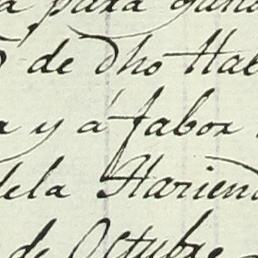 para
de dho Hab
y á fabor
dela Harien
de Octubre